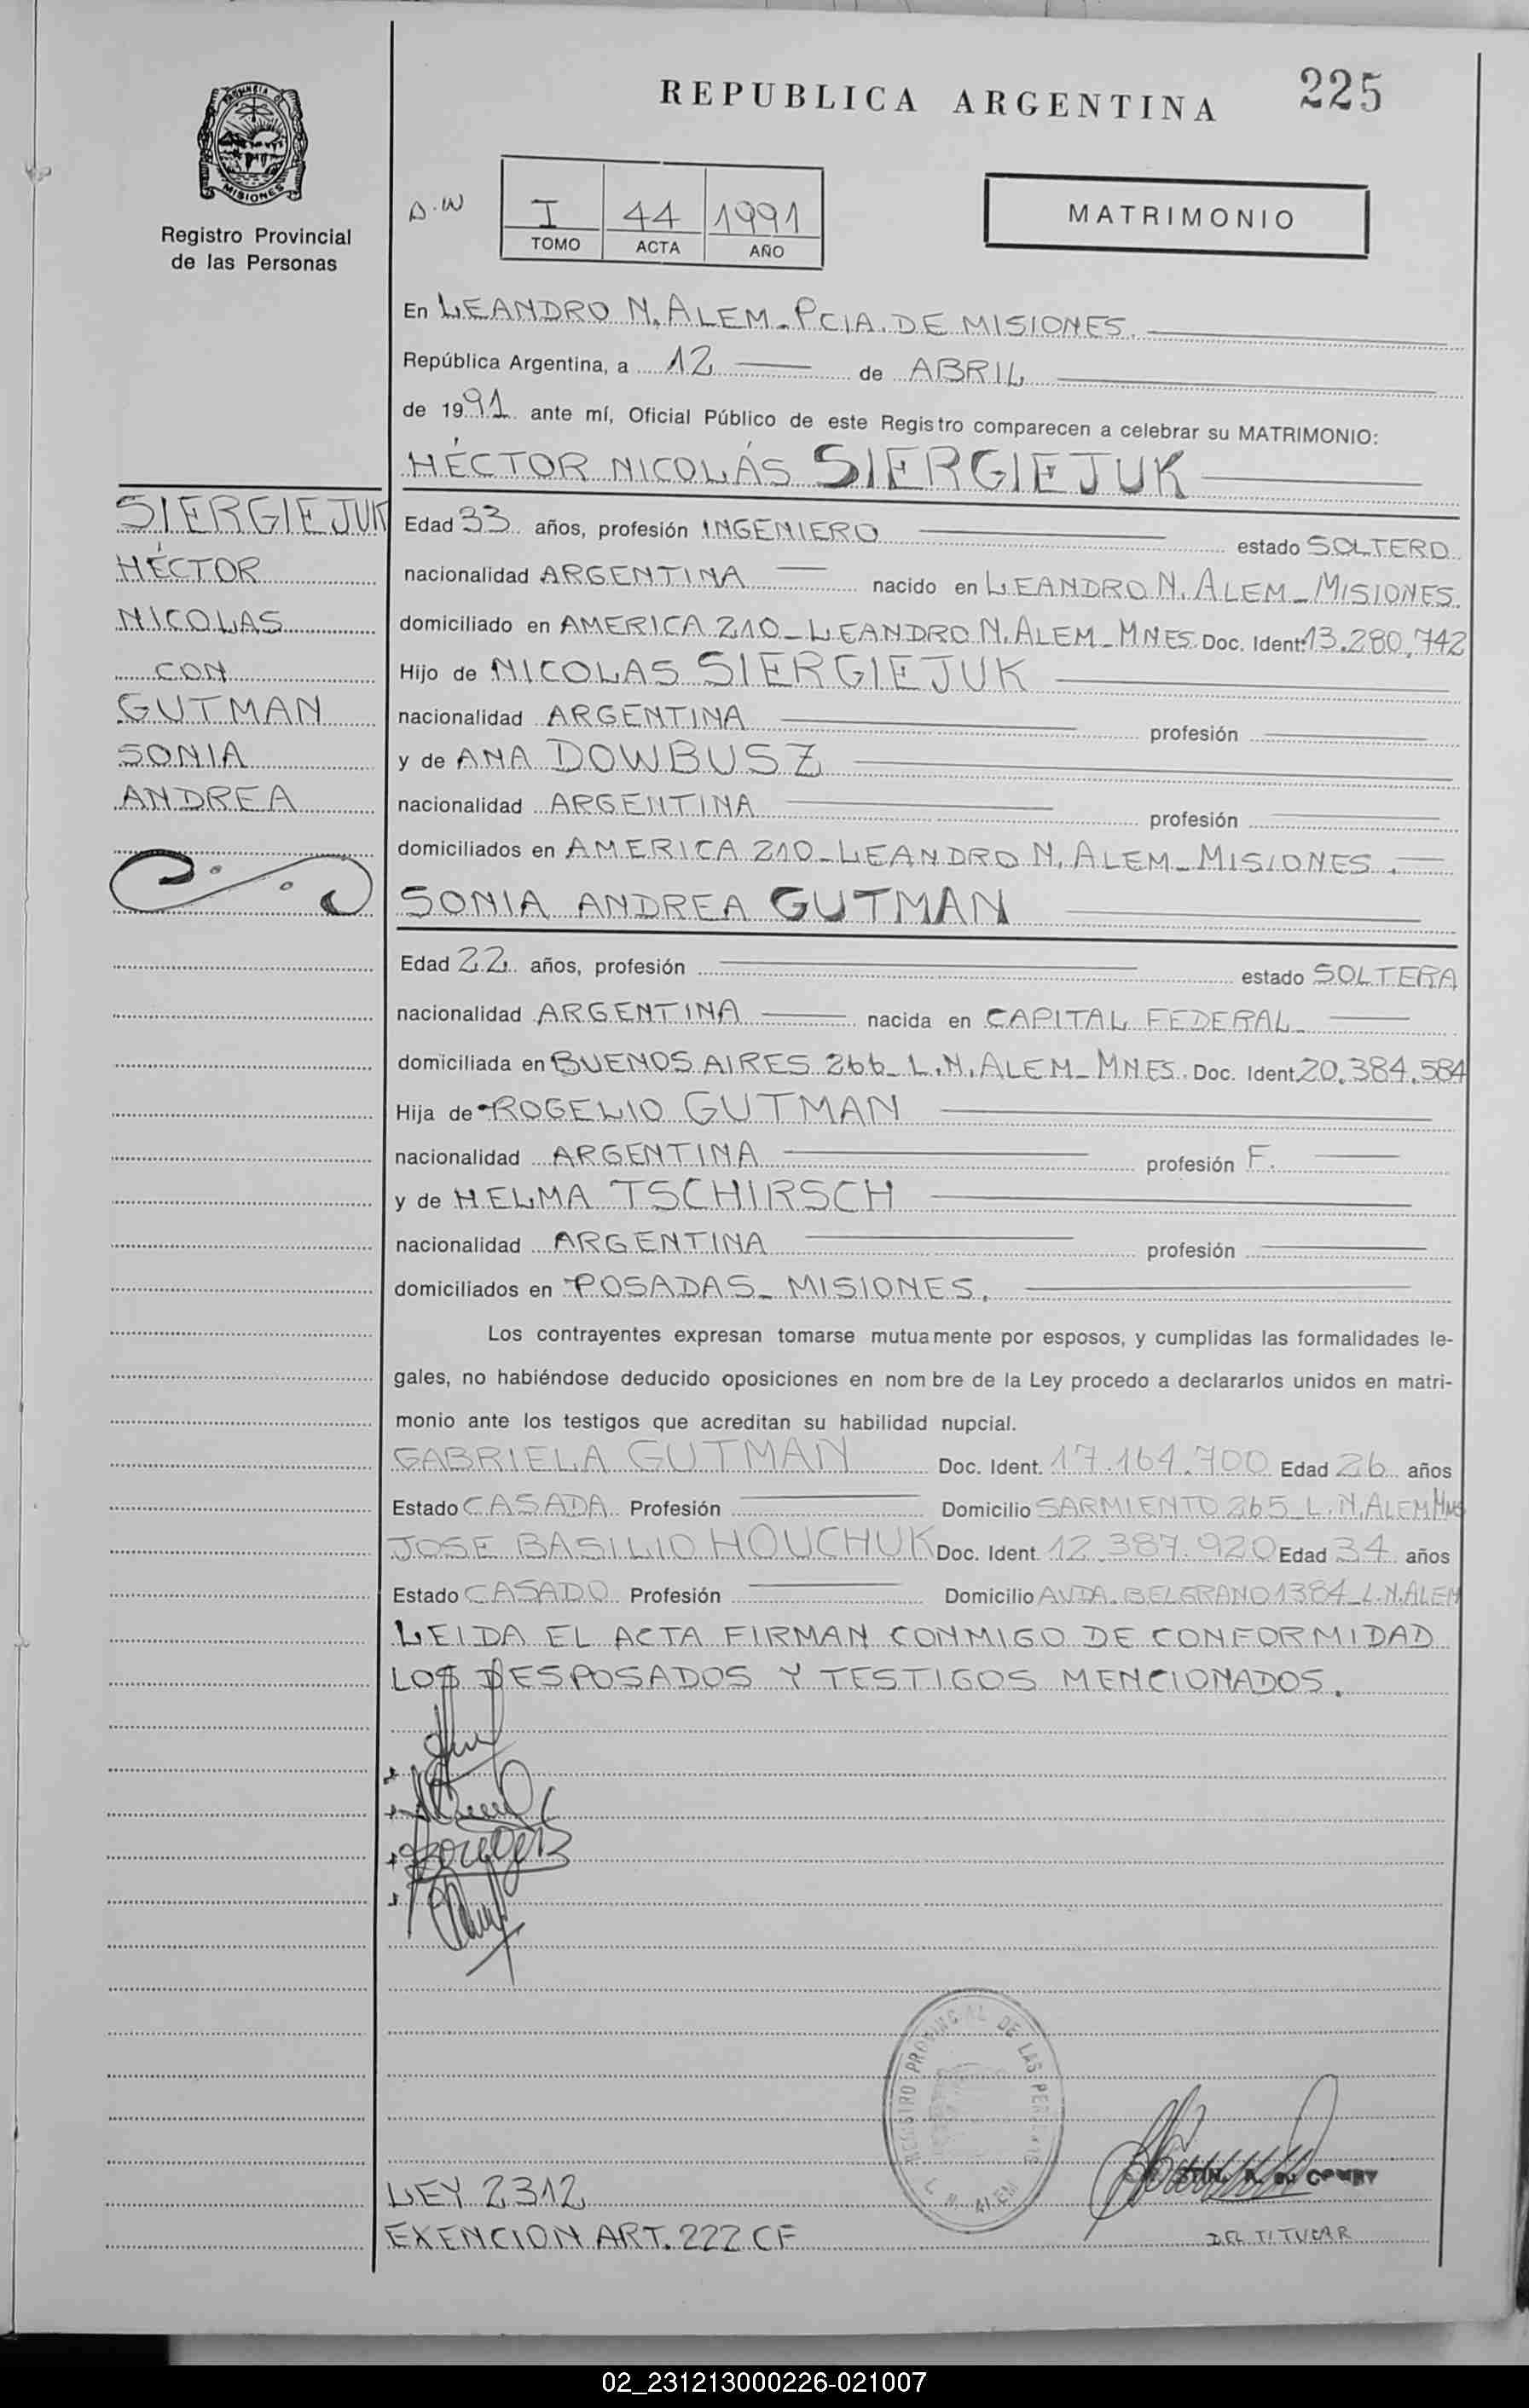 REPUBLICA ARGENTINA
225
PROVINCIA DE
MISIONES
Registro Provincial
de las Personas
D.W
I 44 1991
TOMO ACTA AÑO
MATRIMONIO
En LEANDRO N. ALEM - PCIA. DE MISIONES.
República Argentina, a 12 de ABRIL
de 1991 ante mí, Oficial Público de este Registro comparecen a celebrar su MATRIMONIO:
HÉCTOR NICOLÁS SIERGIEJUK
SIERGIEJUK
HÉCTOR
NICOLAS
CON
GUTMAN
SONIA
ANDREA
Edad 33 años, profesión INGENIERO estado SOLTERO
nacionalidad ARGENTINA nacido en LEANDRO N. ALEM - MISIONES
domiciliado en AMERICA 210 - LEANDRO N. ALEM - MNES. Doc. Ident: 13.280.742
Hijo de NICOLAS SIERGIEJUK
nacionalidad ARGENTINA profesión
y de ANA DOWBUSZ
nacionalidad ARGENTINA profesión
domiciliados en AMERICA 210 - LEANDRO N. ALEM - MISIONES.
SONIA ANDREA GUTMAN
Edad 22 años, profesión estado SOLTERA
nacionalidad ARGENTINA nacida en CAPITAL FEDERAL
domiciliada en BUENOS AIRES 266 - L.N. ALEM - MNES. Doc. Ident. 20.384.584
Hija de ROGELIO GUTMAN
nacionalidad ARGENTINA profesión F.
y de HELMA TSCHIRSCH
nacionalidad ARGENTINA profesión
domiciliados en POSADAS - MISIONES.
Los contrayentes expresan tomarse mutuamente por esposos, y cumplidas las formalidades le-
gales, no habiéndose deducido oposiciones en nom bre de la Ley procedo a declararlos unidos en matri-
monio ante los testigos que acreditan su habilidad nupcial.
GABRIELA GUTMAN Doc. Ident. 17.164.700 Edad 26 años
Estado CASADA Profesión Domicilio SARMIENTO 265 - L.N. ALEM MNS
JOSE BASILIO HOUCHUK Doc. Ident 12.387.920 Edad 34 años
Estado CASADO Profesión Domicilio AVDA. BELGRANO 1384 - L.N. ALEM
LEIDA EL ACTA FIRMAN CONMIGO DE CONFORMIDAD
LOS DESPOSADOS Y TESTIGOS MENCIONADOS.
REGISTRO PROVINCIAL DE LAS PERSONAS
L. N. ALEM
LEY 2312
EXENCION ART. 222 CF
DEL TITULAR
02_231213000226-021007